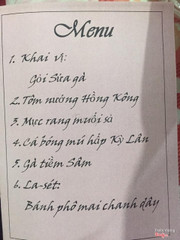 Menu
1. Khai vị:
Gỏi Sứa gà
2. Tôm nướng Hồng Kông
3. Mực rang muối sả
4. Cá bống mú hấp Kỳ Lân
5. Gà tiềm Sâm
6. La-sét:
Bánh phô mai chanh dây